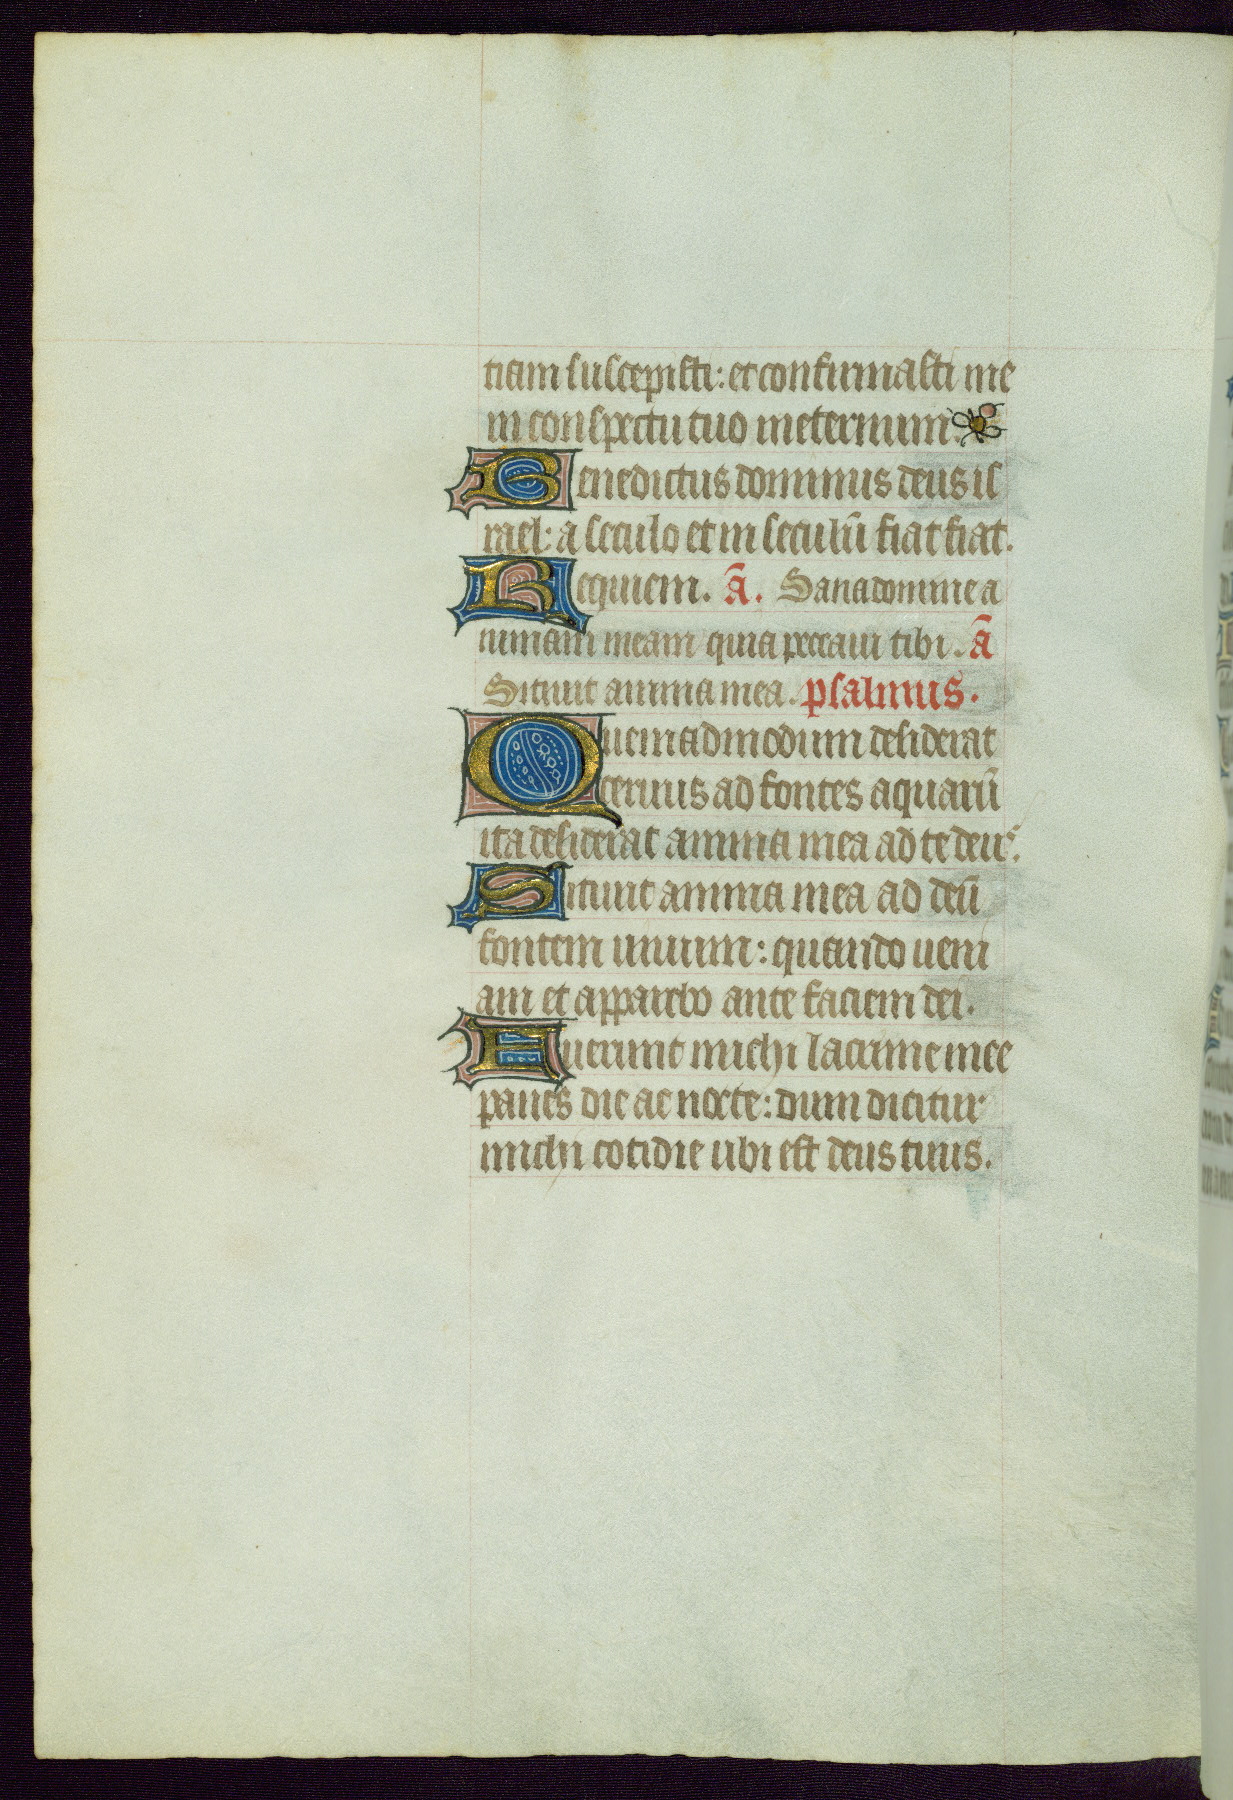 tiam suscepisti: et confirmasti me
in conspectu tuo ineternum.
Benedictus dominus deus is
rael: a seculo et in seculū fiat fiat.
Requiem. Ā. Sana domine a
nimam meam quia peccaui tibi. Ā
Sitiuit anima mea. psalmus.
Quemadmodum desiderat
ceruus ad fontes aquarū
ita desiderat anima mea ad te deus.
Sitiuit anima mea ad deū
fontem uiuum: quando ueni
am et apparebo ante faciem dei.
Fuerunt michi lacrime mee
panes die ac nocte: dum dicitur
michi cotidie ubi est deus tuus.